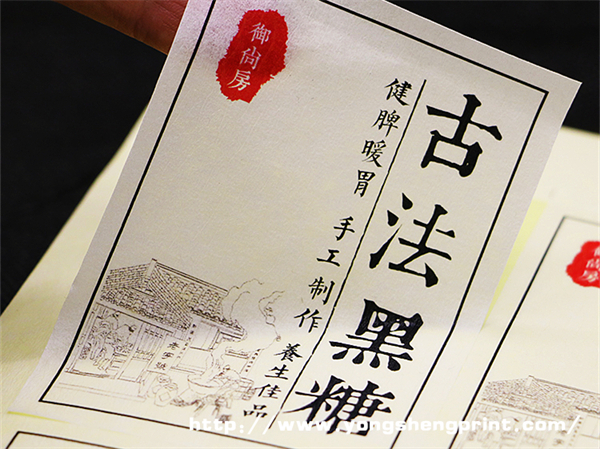 古法黑糖
健脾暖胃 手工制作 養生佳品
御尚房
御尚房
http://www.yongshengprint.com/